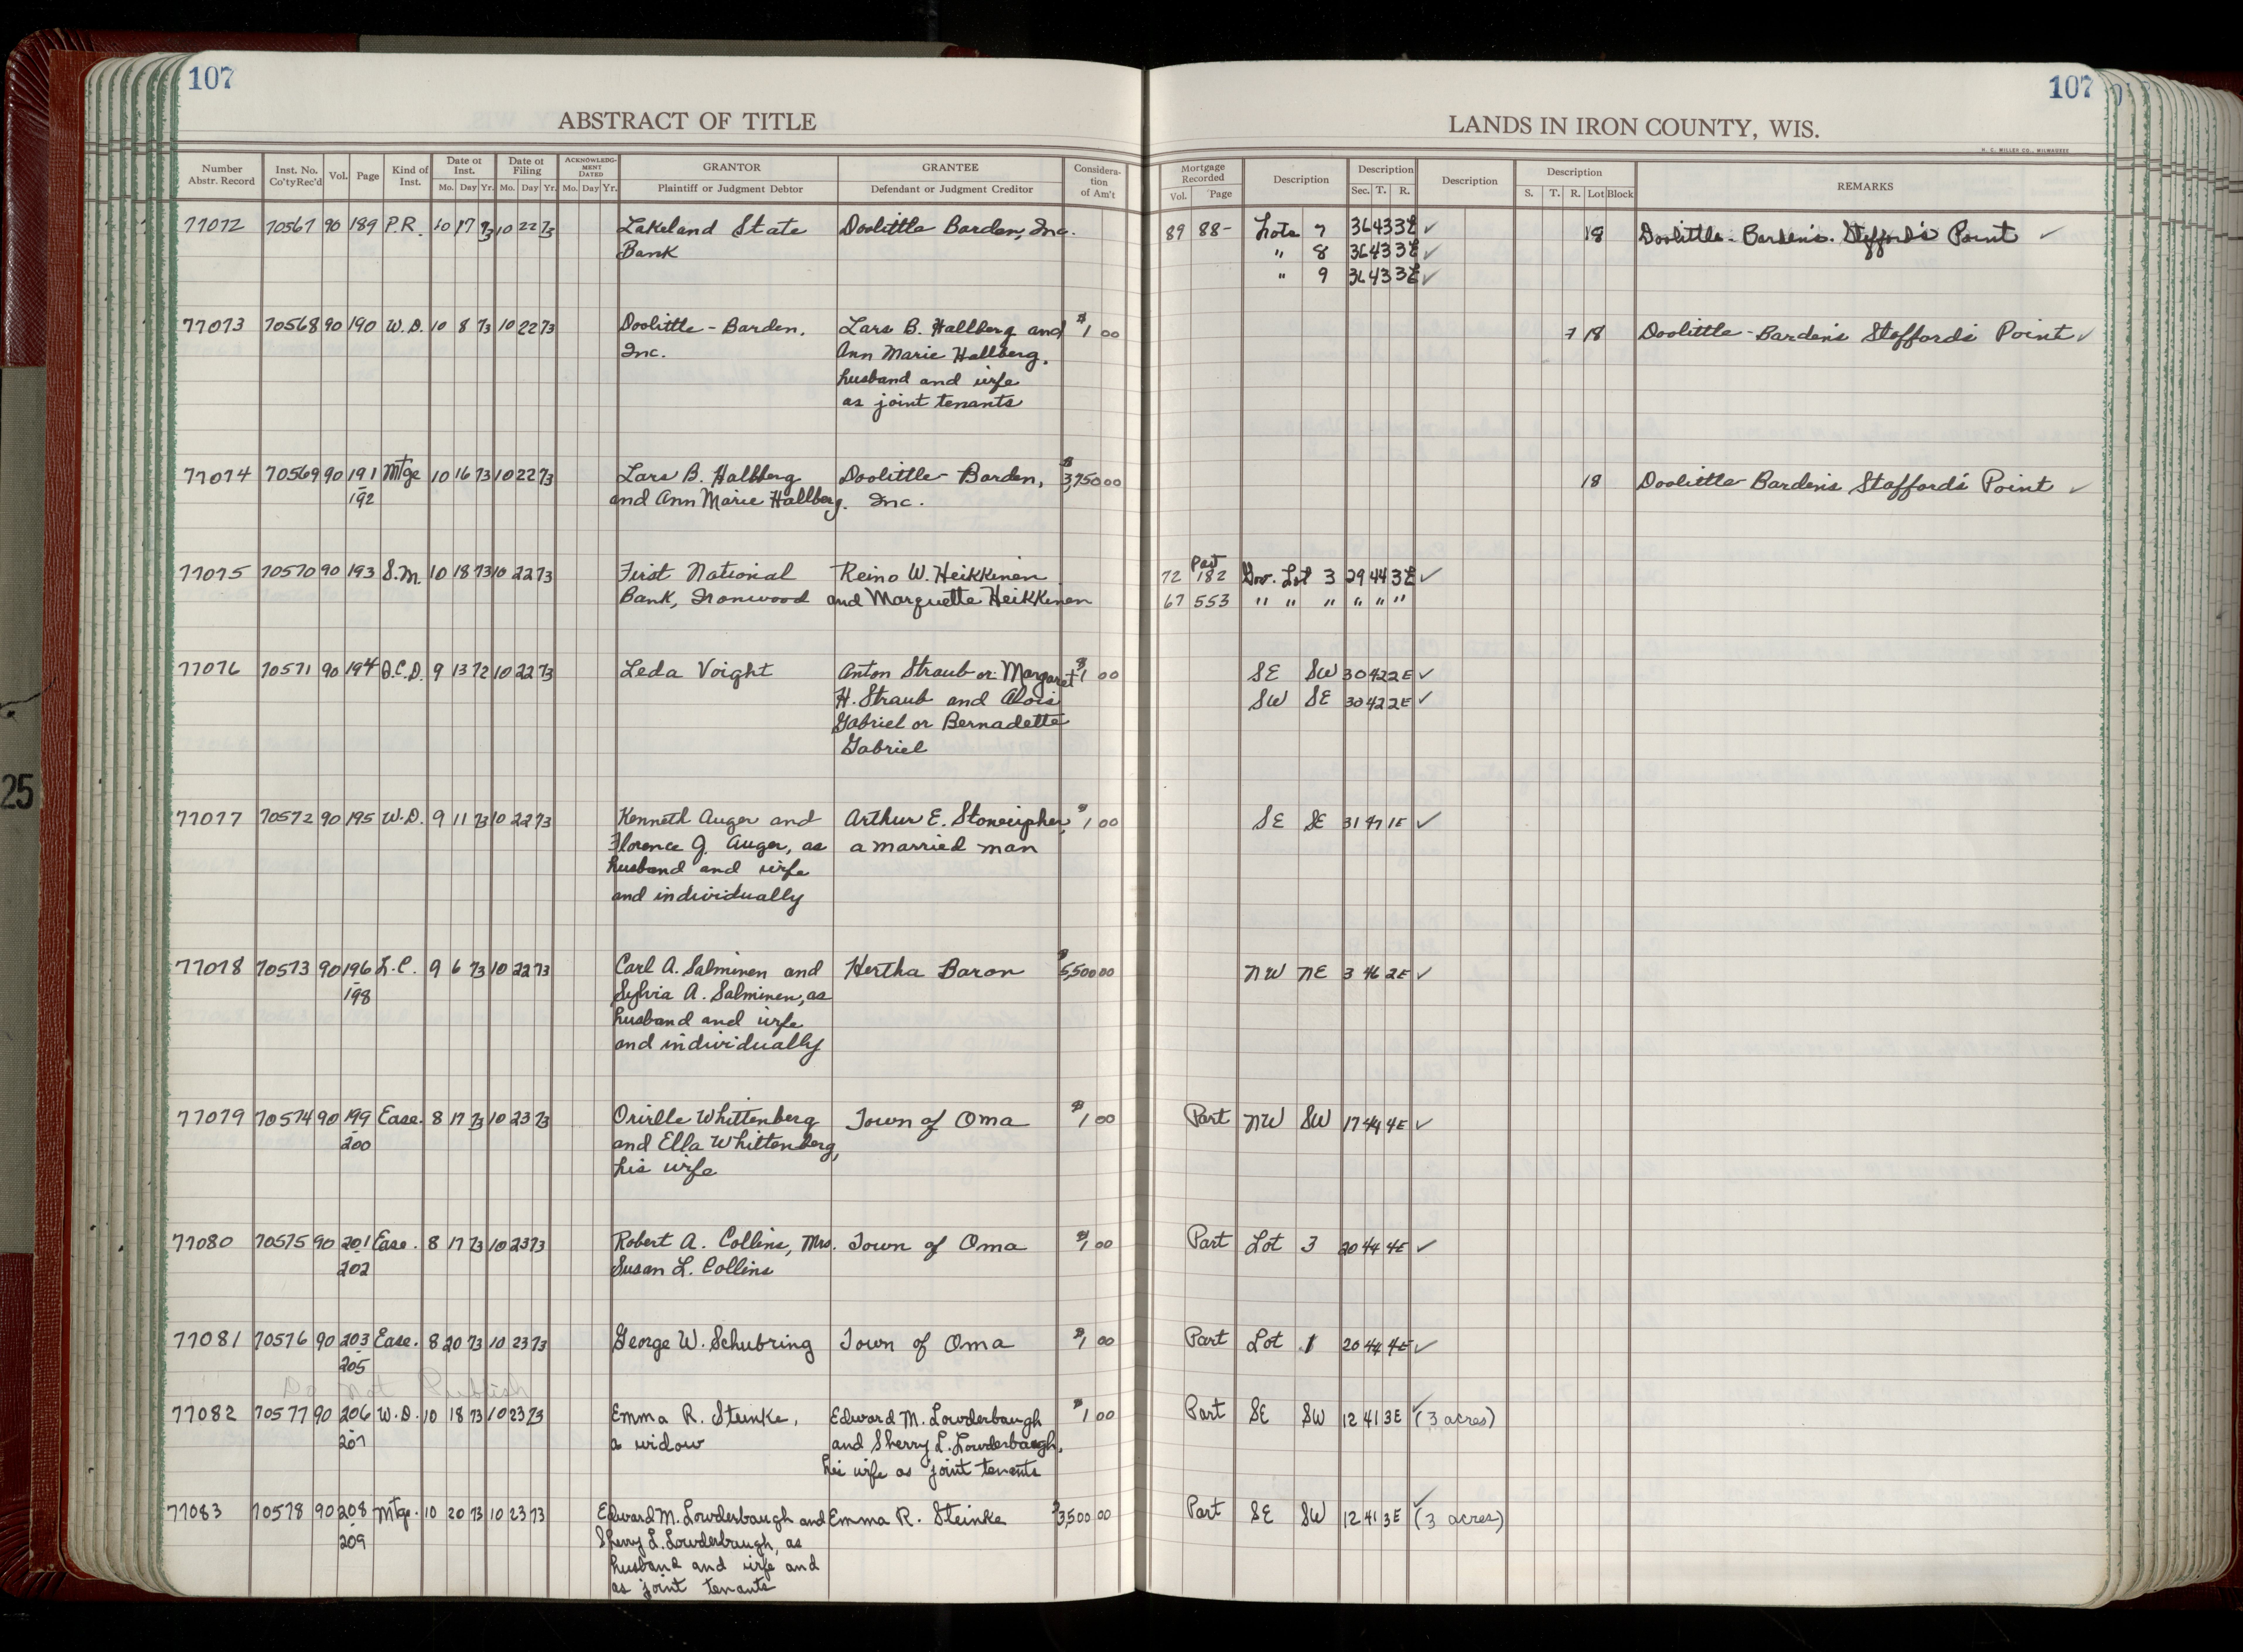 107
107
ABSTRACT OF TITLE
LANDS IN IRON COUNTY, WIS.
H. C. MILLER CO., MILWAUKEE
Number Abstr. Record | Inst. No. Co'ty Rec'd | Vol. | Page | Kind of Inst. | Date of Inst. Mo. Day Yr. | Date of Filing Mo. Day Yr. | ACKNOWLEDGMENT DATED Mo. Day Yr. | GRANTOR Plaintiff or Judgment Debtor | GRANTEE Defendant or Judgment Creditor | Consideration of Am't | Mortgage Recorded Vol. Page | Description | Description Sec. T. R. | Description | Description S. T. R. Lot Block | REMARKS
77072 70567 90 189 P.R. 10 17 73 10 22 73 Lakeland State Doolittle Barden, Inc. 89 88- Lots 7 36 43 3E ✓ 18 Doolittle-Barden's Stafford's Point ✓
Bank " 8 36 43 3E ✓
" 9 36 43 3E ✓
77073 70568 90 190 W.D. 10 8 73 10 22 73 Doolittle-Barden, Lars B. Hallberg and $1 00 7 18 Doolittle-Barden's Stafford's Point ✓
Inc. Ann Marie Hallberg,
husband and wife
as joint tenants
77074 70569 90 191 Mtge 10 16 73 10 22 73 Lars B. Hallberg Doolittle-Barden, $3,750 00 18 Doolittle-Barden's Stafford's Point ✓
-192 and Ann Marie Hallberg. Inc.
Part
77075 70570 90 193 S.M. 10 18 73 10 22 73 First National Reino W. Heikkinen 72 182 Gov. Lot 3 29 44 3E ✓
Bank, Ironwood and Marguette Heikkinen 67 553 " " " " " "
77076 70571 90 194 Q.C.D. 9 13 72 10 22 73 Leda Voight Anton Straub or Margaret $1 00 SE SW 30 42 2E ✓
H. Straub and Alois SW SE 30 42 2E ✓
Gabriel or Bernadette
Gabriel
77077 70572 90 195 W.D. 9 11 73 10 22 73 Kenneth Auger and Arthur E. Stonecipher, $1 00 SE SE 31 47 1E ✓
Florence J. Auger, as a married man
husband and wife
and individually
77078 70573 90 196 L.C. 9 6 73 10 22 73 Carl A. Salminen and Hertha Baron $5,500 00 NW NE 3 46 2E ✓
-198 Sylvia A. Salminen, as
husband and wife
and individually
77079 70574 90 199 Ease. 8 17 73 10 23 73 Orielle Whittenberg Town of Oma $1 00 Part NW SW 17 44 4E ✓
-200 and Ella Whittenberg,
his wife
77080 70575 90 201 Ease. 8 17 73 10 23 73 Robert A. Collins, Mrs. Town of Oma $1 00 Part Lot 3 20 44 4E ✓
-202 Susan L. Collins
77081 70576 90 203 Ease. 8 20 73 10 23 73 George W. Schubring Town of Oma $1 00 Part Lot 1 20 44 4E ✓
-205
Do Not Publish
77082 70577 90 206 W.D. 10 18 73 10 23 73 Emma R. Steinke, Edward M. Lowderbaugh $1 00 Part SE SW 12 41 3E ✓ (3 acres)
-207 a widow and Sherry L. Lowderbaugh,
his wife as joint tenants
77083 70578 90 208 Mtge. 10 20 73 10 23 73 Edward M. Lowderbaugh and Emma R. Steinke $3,500 00 Part SE SW 12 41 3E ✓ (3 acres)
-209 Sherry L. Lowderbaugh, as
husband and wife and
as joint tenants
25